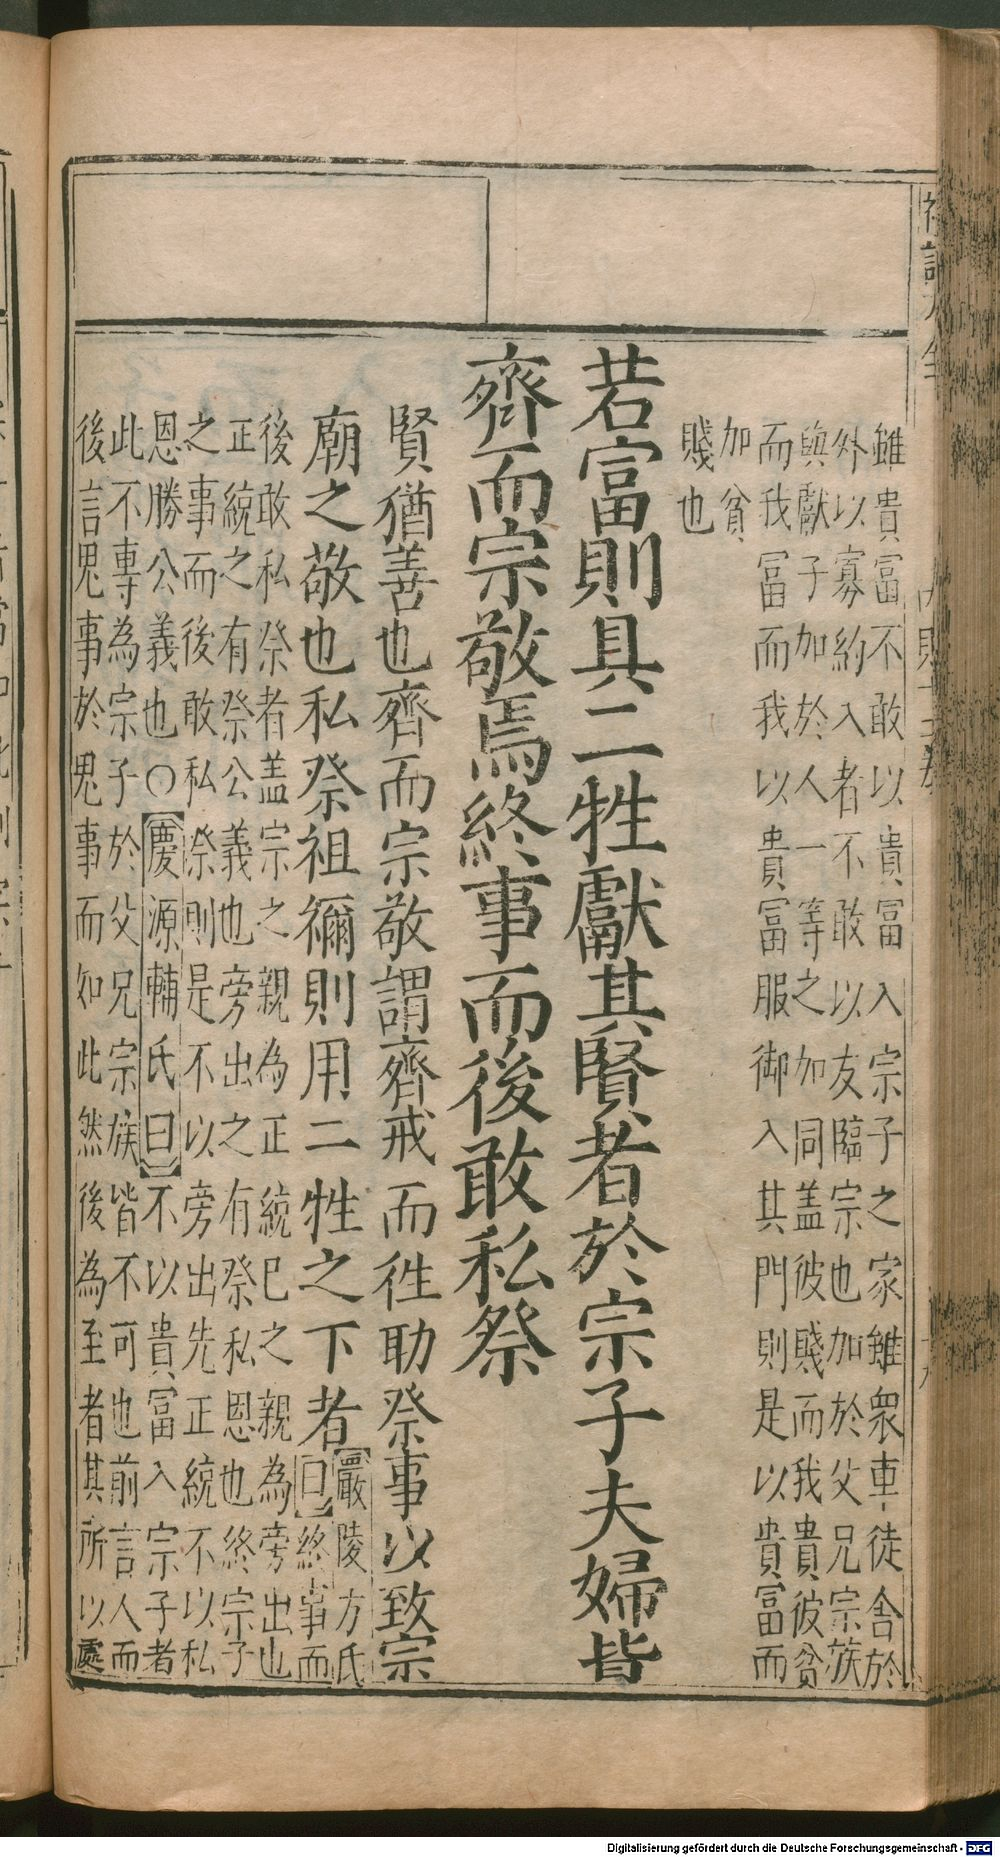 雖貴富不敢以貴富入宗子之家雖衆車徒舍於
外以寡約入者不敢以友臨宗也加於父兄宗族
與獻子加於人一等之加同盖彼賤而我貴彼貧
而我富而我以貴富服御入其門則是以貴富而
加貧
賤也
若富則具二牲獻其賢者於宗子夫婦皆
齊而宗敬焉終事而後敢私祭
賢猶善也齊而宗敬謂齊戒而徃助祭事以致宗
廟之敬也私祭祖禰則用二牲之下者
嚴陵方氏
曰終事而
後敢私祭者盖宗之親為正統已之親為旁出也
正統之有祭公義也旁出之有祭私恩也終宗子
之事而後敢私祭則是不以旁出先正統不以私
恩勝公義也○慶源輔氏曰不以貴富入宗子者
此不專為宗子於父兄宗族皆不可也前言人而
後言鬼事於鬼事而如此然後為至者其所以處
Digitalisierung gefördert durch die Deutsche Forschungsgemeinschaft - DFG